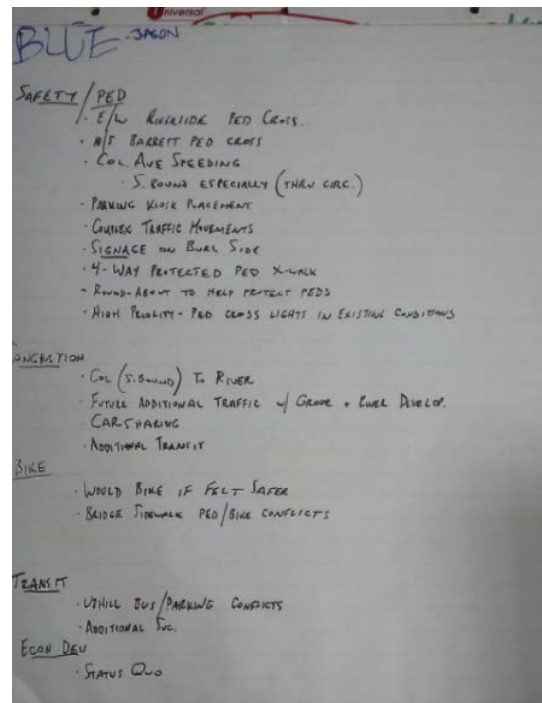 Universal
BLUE - JASON
SAFETY / PED
· E/W RIVERSIDE PED CROSS.
· N/S BARRETT PED CROSS
· COL. AVE SPEEDING
· S. BOUND ESPECIALLY (THRU CIRC.)
· PARKING KIOSK PLACEMENT
· COMPLEX TRAFFIC MOVEMENTS
· SIGNAGE ON BURL SIDE
· 4-WAY PROTECTED PED X-WALK
- ROUND-ABOUT TO HELP PROTECT PEDS
· HIGH PRIORITY - PED CROSS LIGHTS IN EXISTING CONDITIONS
ONGESTION
· COL (S. BOUND) TO RIVER
· FUTURE ADDITIONAL TRAFFIC w/ GROVE + RIVER DEVELOP.
· CAR SHARING
· ADDITIONAL TRANSIT
BIKE
· WOULD BIKE IF FELT SAFER
· BRIDGE SIDEWALK PED/BIKE CONFLICTS
TRANSIT
· UPHILL BUS/PARKING CONFLICTS
· ADDITIONAL SVC.
ECON DEV
· STATUS QUO